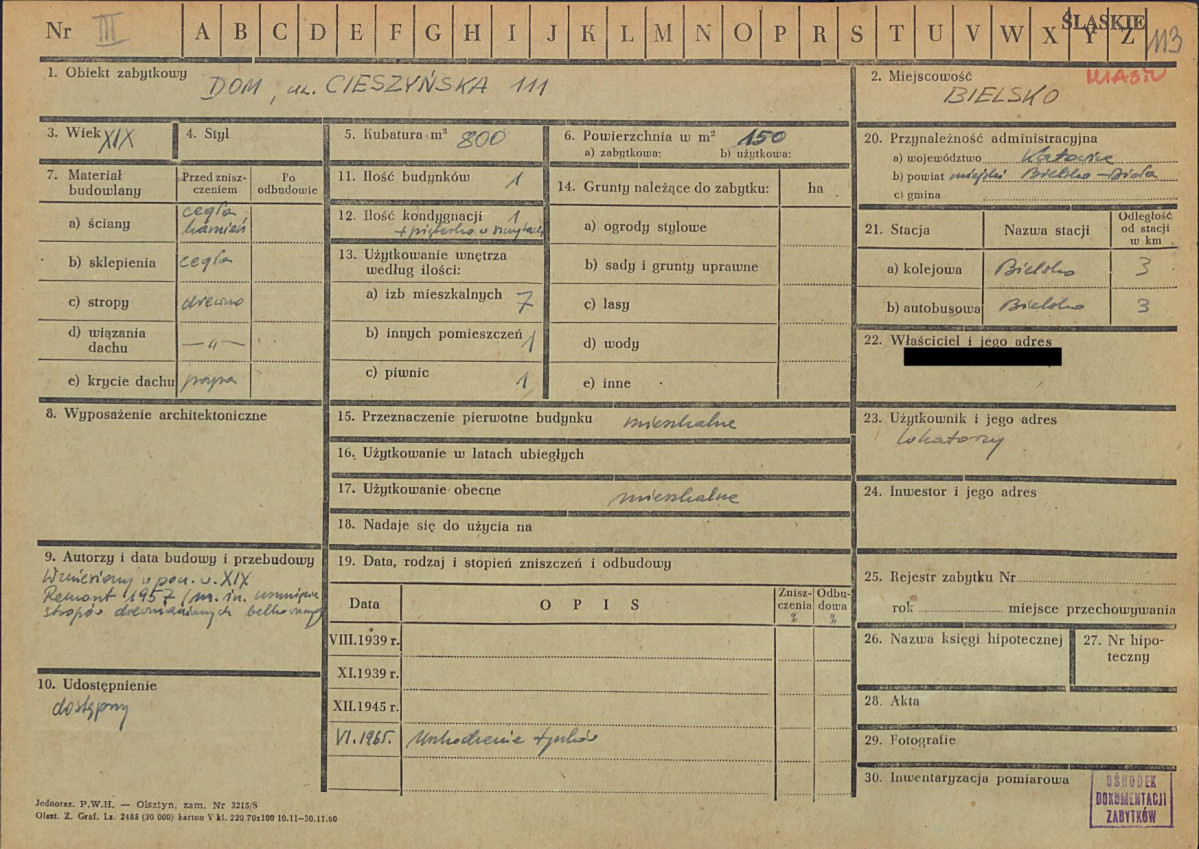 Nr III A B C D E F G H I J K L M N O P R S T U V W X Y Z
ŚLĄSKIE
113
1. Obiekt zabytkowy
DOM, ul. CIESZYŃSKA 111
2. Miejscowość
MIASTO
BIELSKO
3. Wiek XIX
4. Styl
5. Kubatura m³ 800
6. Powierzchnia w m² 150
a) zabytkowa: b) użytkowa:
7. Materiał budowlany
Przed zniszczeniem
Po odbudowie
a) ściany cegła kamień
b) sklepienia cegła
c) stropy drewno
d) wiązania dachu —„—
e) krycie dachu papa
8. Wyposażenie architektoniczne
9. Autorzy i data budowy i przebudowy
Wzniesiony w poł. w. XIX
Remont 1957 (m. in. usunięcie
stropów drewnianych belkowanych
10. Udostępnienie
dostępny
11. Ilość budynków 1
12. Ilość kondygnacji 1
+ pięterko w szczytach
13. Użytkowanie wnętrza
według ilości:
a) izb mieszkalnych 7
b) innych pomieszczeń 1
c) piwnic 1
14. Grunty należące do zabytku: ha
a) ogrody stylowe
b) sady i grunty uprawne
c) lasy
d) wody
e) inne
15. Przeznaczenie pierwotne budynku mieszkalne
16. Użytkowanie w latach ubiegłych
17. Użytkowanie obecne mieszkalne
18. Nadaje się do użycia na
19. Data, rodzaj i stopień zniszczeń i odbudowy
Data OPIS Zniszczenia % Odbudowa %
VIII.1939 r.
XI.1939 r.
XII.1945 r.
VI.1965. Uszkodzenie tynków
20. Przynależność administracyjna
a) województwo Katowice
b) powiat miejski Bielsko-Biała
c) gmina
21. Stacja Nazwa stacji Odległość od stacji w km
a) kolejowa Bielsko 3
b) autobusowa Bielsko 3
22. Właściciel i jego adres
23. Użytkownik i jego adres
lokatorzy
24. Inwestor i jego adres
25. Rejestr zabytku Nr
rok miejsce przechowywania
26. Nazwa księgi hipotecznej
27. Nr hipoteczny
28. Akta
29. Fotografie
30. Inwentaryzacja pomiarowa
OŚRODEK
DOKUMENTACJI
ZABYTKÓW
Jednoraz. P.W.H. — Olsztyn, zam. Nr 3215/S
Olszt. Z. Graf. Lz. 2485 (30 000) karton V kl. 220 70x100 10.11—30.11.60